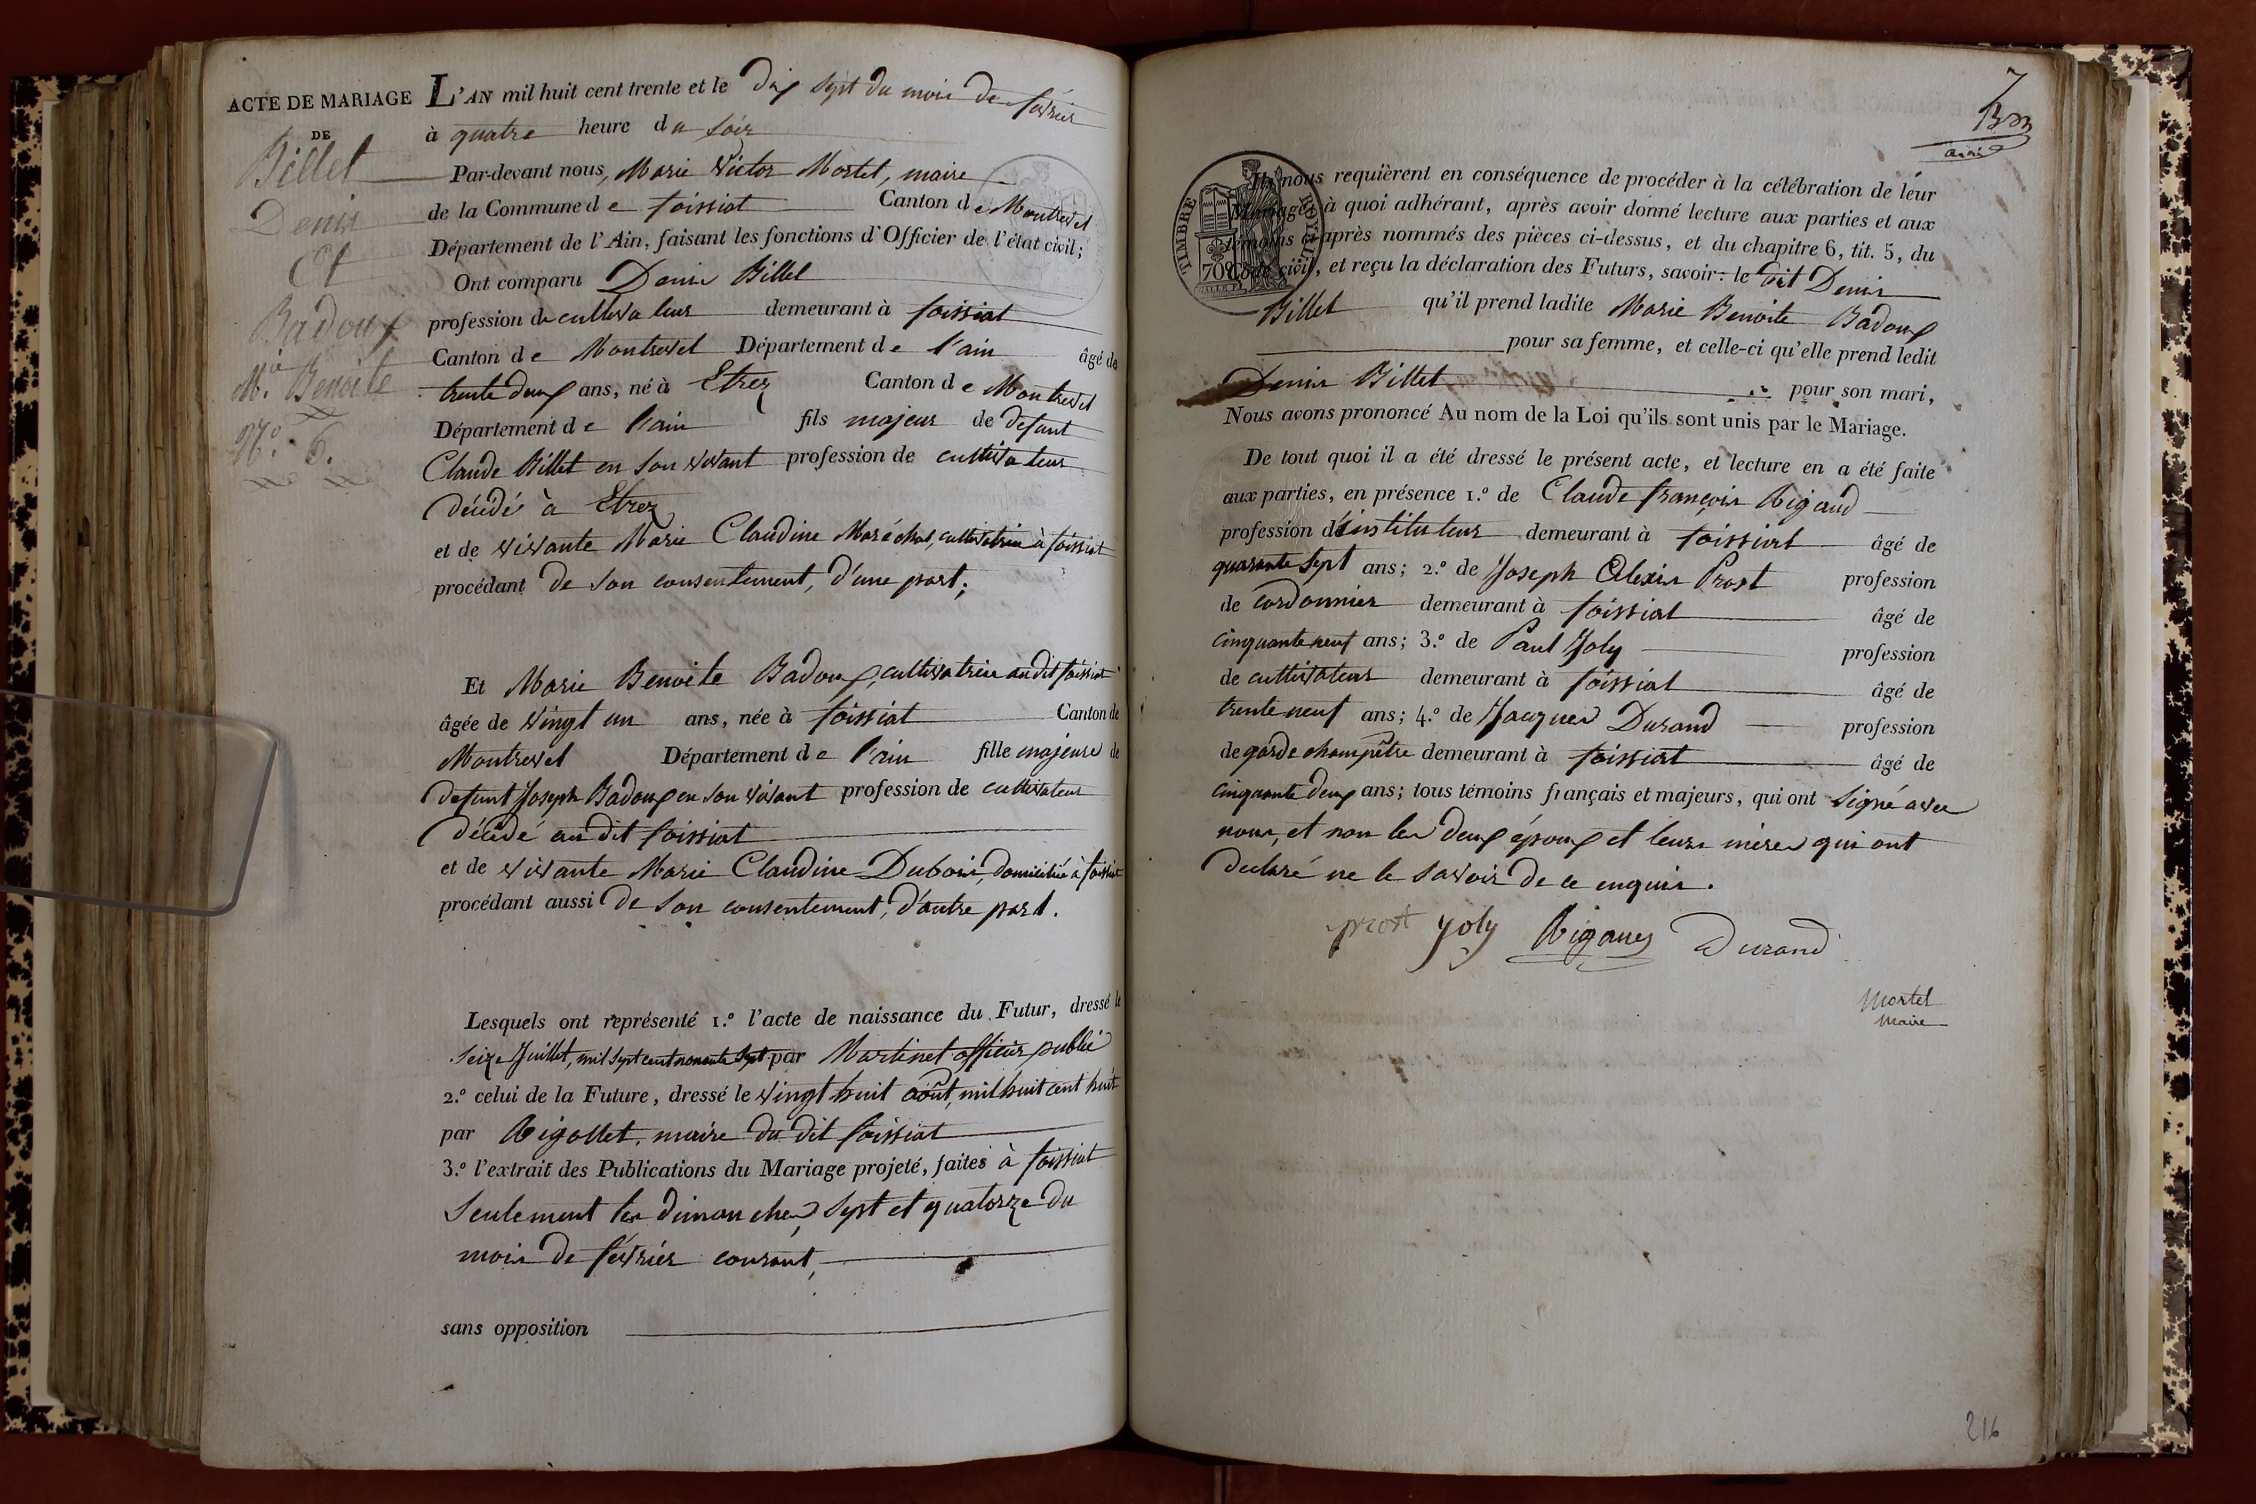 ACTE DE MARIAGE
DE
Billet
Denis
Et
Badoux
M.ie Benoite
N.° 6.
L'AN mil huit cent trente et le dix sept du mois de février
à quatre heure du soir
Par-devant nous, Marie Victor Mortel, maire
de la Commune de foissiat Canton de Montrevel
Département de l'Ain, faisant les fonctions d'Officier de l'état civil;
Ont comparu Denis Billet
profession de cultivateur demeurant à foissiat
Canton de Montrevel Département de l'ain âgé de
trente deux ans, né à Etrez Canton de Montrevel
Département de l'ain fils majeur de defunt
Claude Billet en son vivant profession de cultivateur
décédé à Etrez
et de vivante Marie Claudine Maréchal, cultivatrice à foissiat
procédant de son consentement, d'une part;
Et Marie Benoite Badoux, cultivatrice audit foissiat
âgée de vingt un ans, née à foissiat Canton de
Montrevel Département de l'ain fille majeure de
defunt Joseph Badoux en son vivant profession de cultivateur
décédé au dit foissiat
et de vivante Marie Claudine Dubois, domiciliée à foissiat
procédant aussi de son consentement, d'autre part.
Lesquels ont représenté 1.° l'acte de naissance du Futur, dressé le
seize Juillet, mil sept cent nonante sept par Martinet officier public
2.° celui de la Future, dressé le vingt huit août, mil huit cent huit
par Rigollet, maire du dit foissiat
3.° l'extrait des Publications du Mariage projeté, faites à foissiat
seulement les dimanches sept et quatorze du
mois de février courant,
sans opposition
7
TIMBRE ROYAL
70
Ils nous requièrent en conséquence de procéder à la célébration de leur
Mariage, à quoi adhérant, après avoir donné lecture aux parties et aux
témoins ci-après nommés des pièces ci-dessus, et du chapitre 6, tit. 5, du
Code civil, et reçu la déclaration des Futurs, savoir: le dit Denis
Billet qu'il prend ladite Marie Benoite Badoux
pour sa femme, et celle-ci qu'elle prend ledit
Denis Billet pour son mari,
Nous avons prononcé Au nom de la Loi qu'ils sont unis par le Mariage.
De tout quoi il a été dressé le présent acte, et lecture en a été faite
aux parties, en présence 1.° de Claude françois Rigaud
profession d'instituteur demeurant à foissiat âgé de
quarante sept ans; 2.° de Joseph Alexis Prost profession
de cordonnier demeurant à foissiat âgé de
cinquante neuf ans; 3.° de Paul Joly profession
de cultivateur demeurant à foissiat âgé de
trente neuf ans; 4.° de Jacques Durand profession
de garde champêtre demeurant à foissiat âgé de
cinquante deux ans; tous témoins français et majeurs, qui ont signé avec
nous, et non les deux époux et leurs mères qui ont
declaré ne le savoir de ce enquis.
prost Joly Rigaud Durand
Mortel
Maire
216